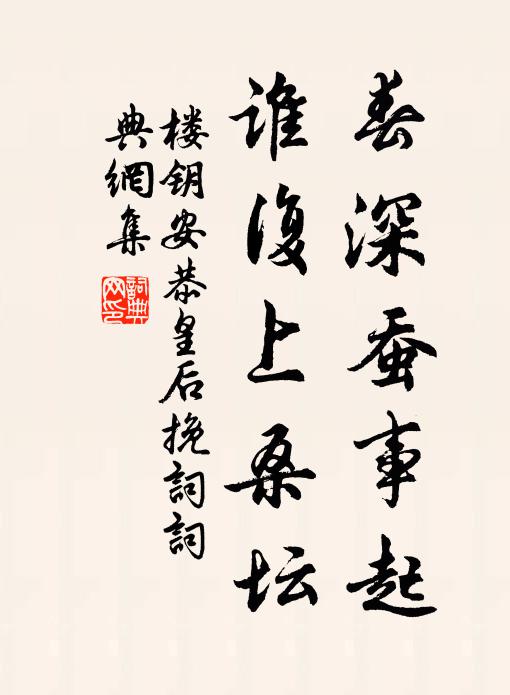 春深蚕事起
谁復上桑坛
楼钥安恭皇后挽詞詞
典網集
詞典
网印